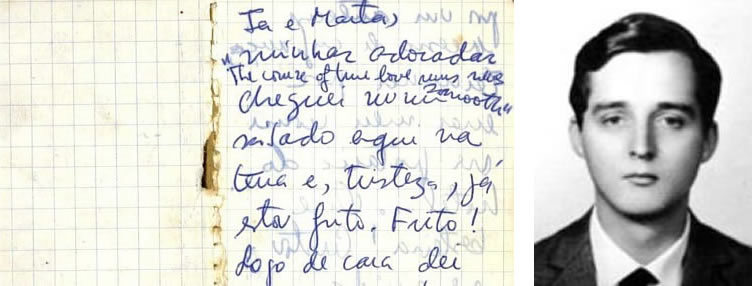 Ia e Marta,
minhas adoradas
"The course of true love runs never
smooth"
cheguei num
sábado aqui na
terra e, tristeza, já
estou frito. Frito!
Logo de cara dei